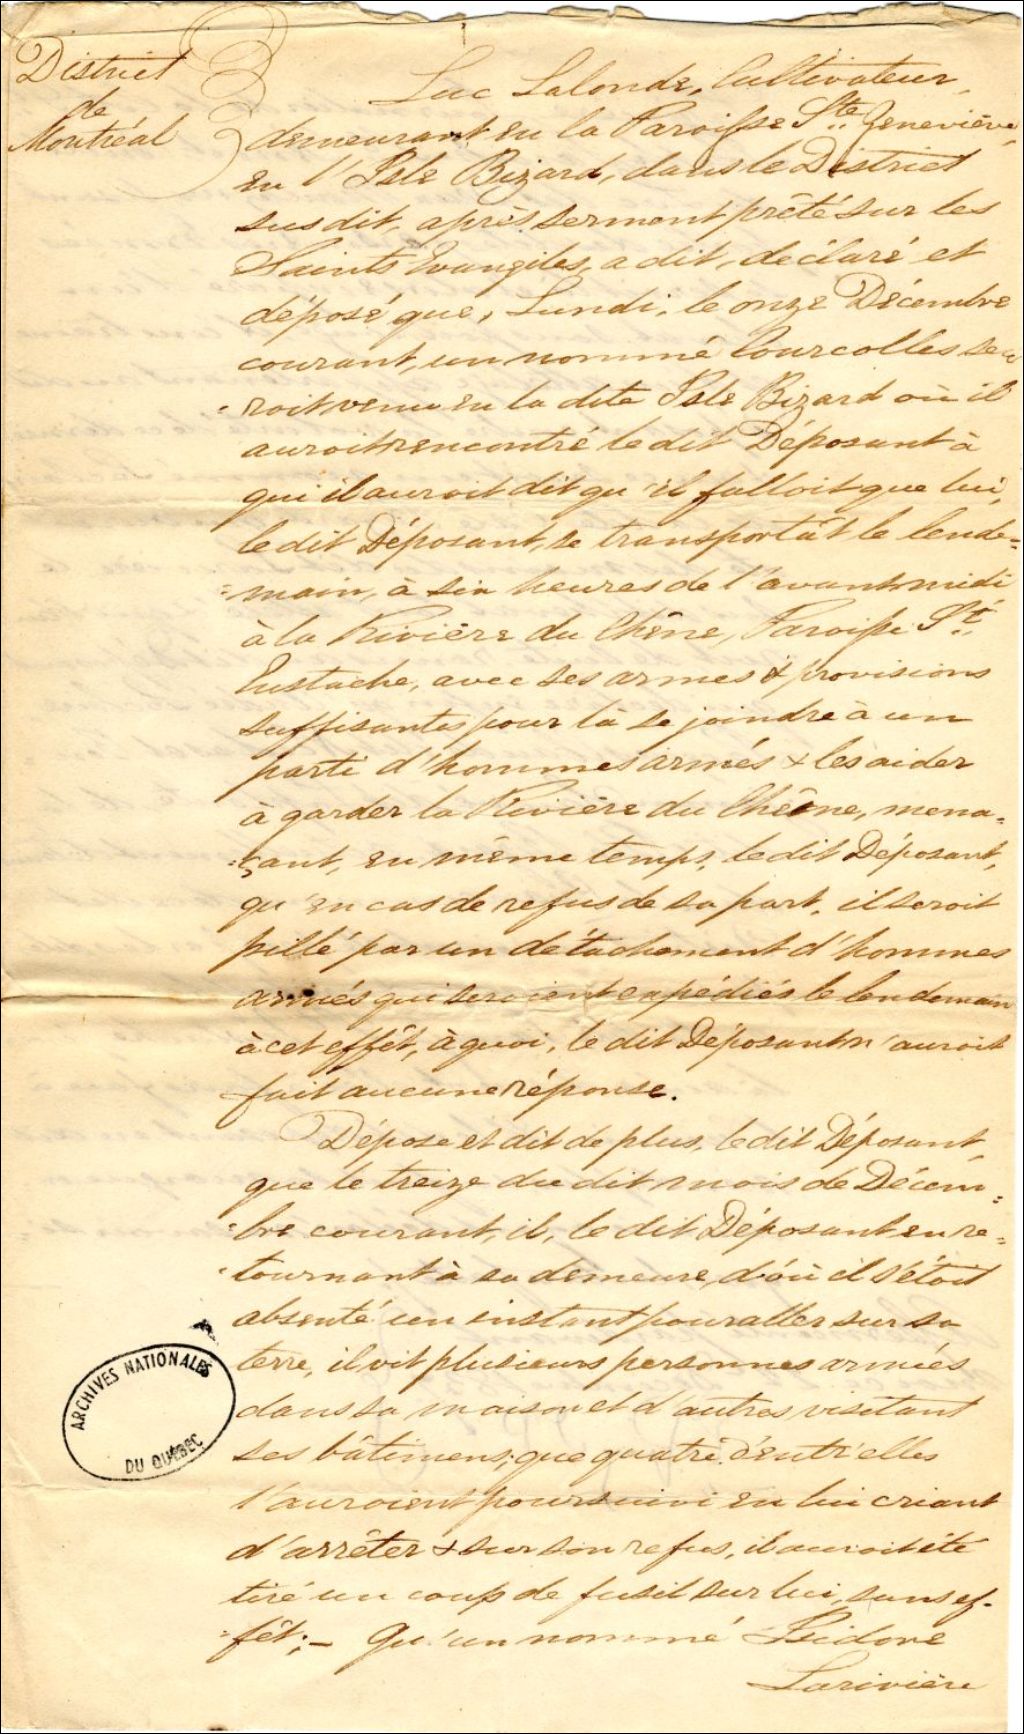 District
de
Montréal
Luc Lalonde, Cultivateur,
demeurant en la Paroisse Ste. Geneviève,
en l'Isle Bizard, dans le District
susdit, après serment prêté sur les
Saints Evangiles, a dit, déclaré et
déposé que, Lundi, le onze Décembre
courant, un nommé Courcolles se
roit venu en la dite Isle Bizard où il
auroit rencontré le dit Déposant à
qui il auroit dit qu'il falloit que lui,
le dit Déposant, se transportât le lende=
=main, à six heures de l'avant midi
à la Rivière du Chêne, Paroisse St.
Eustache, avec ses armes & provisions
suffisantes pour là se joindre à un
parti d'hommes armés & les aider
à garder la Rivière du Chêne, mena=
=çant, en même temps, le dit Déposant,
qu'en cas de refus de sa part, il seroit
pillé par un détachement d'hommes
armés qui seroient expédiés le lendemain
à cet effêt, à quoi, le dit Déposant n'auroit
fait aucune réponse.
Dépose et dit de plus, le dit Déposant,
que le treize du dit mois de Décem=
=bre courant, il, le dit Déposant en re=
=tournant à sa demeure, d'où il s'étoit
absenté un instant pour aller sur sa
terre, il vit plusieurs personnes armées
dans sa maison et d'autres visitant
ses bâtimens; que quatre d'entr'elles
l'auroient poursuivi en lui criant
d'arrêter & sur son refus, il auroit été
tiré un coup de fusil sur lui, sans ef-
=fêt; – Qu'un nommé Isidore
Larivière
ARCHIVES NATIONALES
DU QUÉBEC